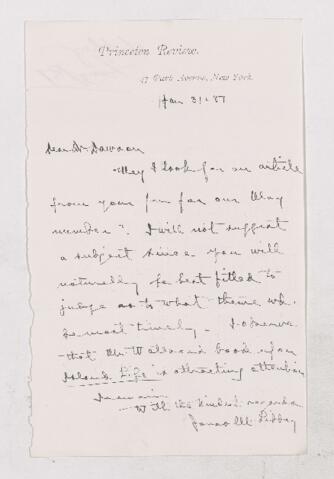 Princeton Review.
37 Park Avenue, New York.
Jan 31. 81
Dear Dr. Dawson
May I look for an article
from your pen for our May
number? I will not suggest
a subject since you will
naturally be best fitted to
judge as to what theme wd.
be most timely. I observe
that Mr Wallace's book upon
Island Life is attracting attention
With the kindest regards